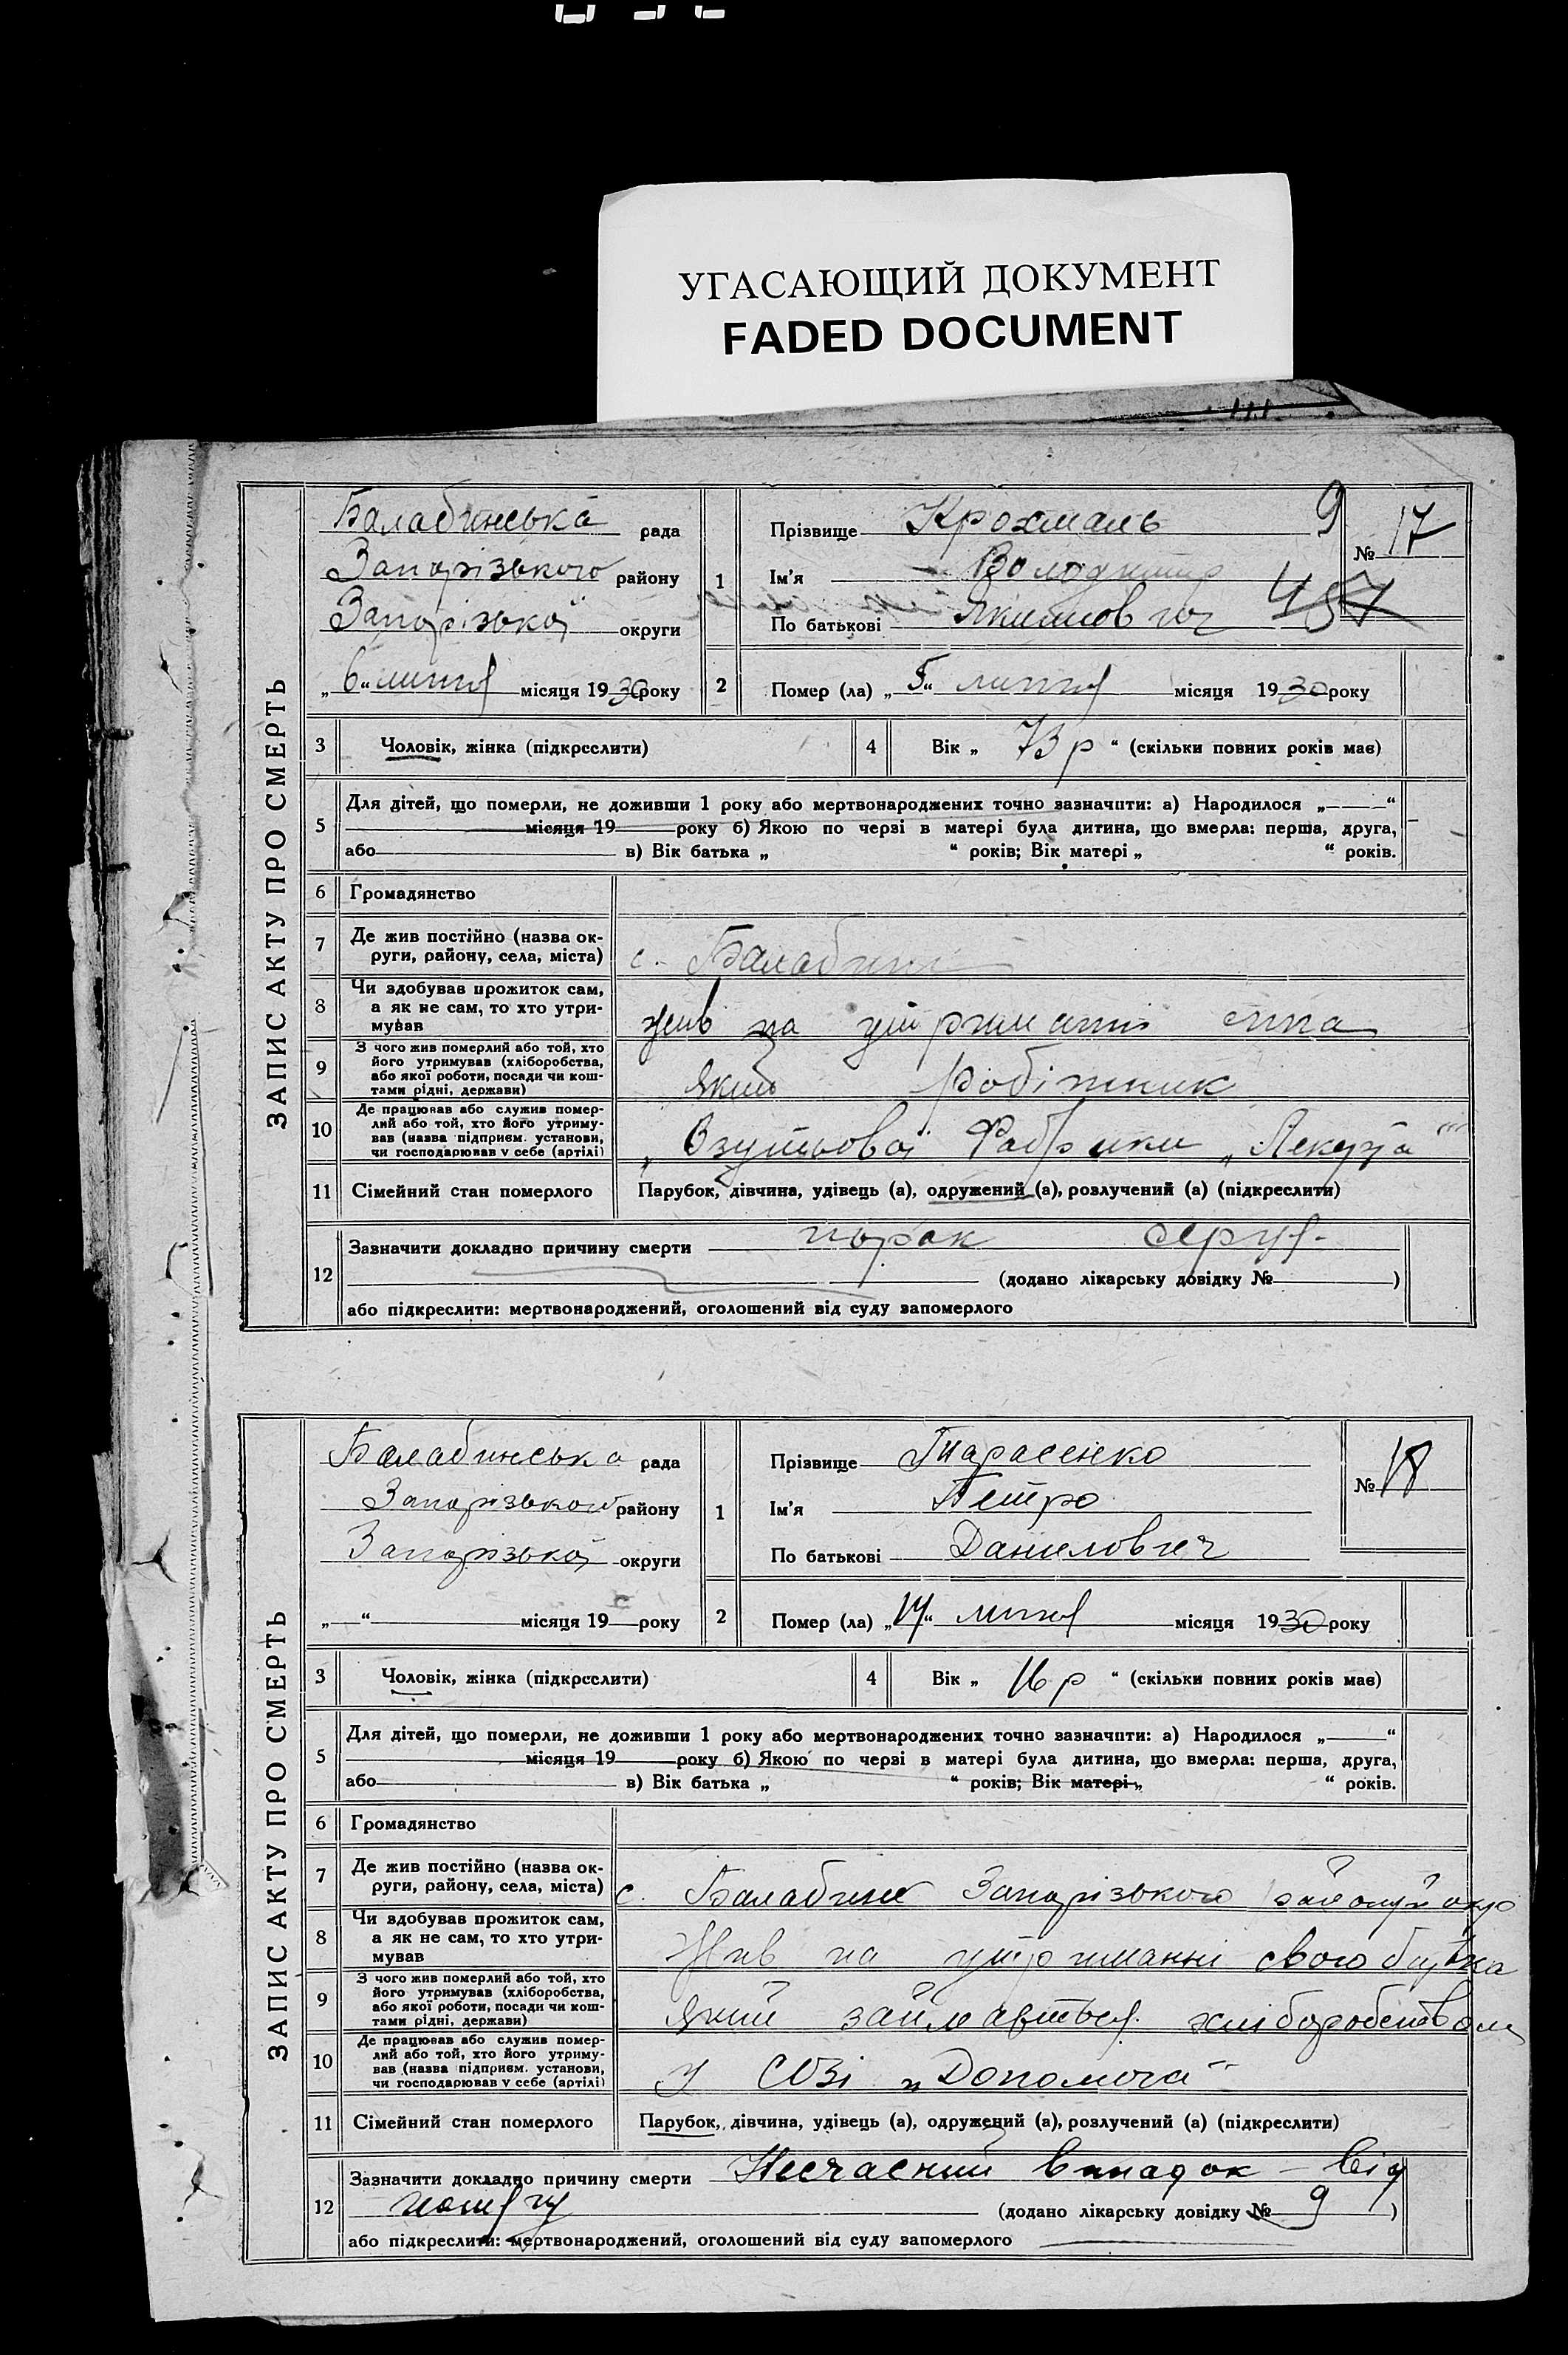 УГАСАЮЩИЙ ДОКУМЕНТ
FADED DOCUMENT
ЗАПИС АКТУ ПРО СМЕРТЬ
Балабинська рада
Запорізького району
Запорізької округи
„6“ липня місяця 1930 року
1
Прізвище Крохмаль 9
Ім'я Володимир
По батькові Якимович
№ 17
457
2
Помер (ла) „5“ липня місяця 1930 року
3
Чоловік, жінка (підкреслити)
4
Вік „ 73 р “ (скільки повних років має)
5
Для дітей, що померли, не доживши 1 року або мертвонароджених точно зазначити: а) Народилося „ “
місяця 19 року б) Якою по черзі в матері була дитина, що вмерла: перша, друга,
або в) Вік батька „ “ років; Вік матері „ “ років.
6
Громадянство
7
Де жив постійно (назва ок-
руги, району, села, міста)
с. Балабине
8
Чи здобував прожиток сам,
а як не сам, то хто утри-
мував
жив на утриманні сина
9
З чого жив померлий або той, хто
його утримував (хліборобства,
або якої роботи, посади чи кош-
тами рідні, держави)
який робітник
10
Де працював або служив помер-
лий або той, хто його утриму-
вав (назва підприєм. установи,
чи господарював у себе (артілі)
Взутьової Фабрики
11
Сімейний стан померлого
Парубок, дівчина, удівець (а), одружений (а), розлучений (а) (підкреслити)
12
Зазначити докладно причину смерти порок серця
(додано лікарську довідку № )
або підкреслити: мертвонароджений, оголошений від суду запомерлого
ЗАПИС АКТУ ПРО СМЕРТЬ
Балабинська рада
Запорізького району
Запорізької округи
„ “ місяця 19 року
1
Прізвище Тарасенко
Ім'я Петро
По батькові Данилович
№ 18
2
Помер (ла) „17“ липня місяця 1930 року
3
Чоловік, жінка (підкреслити)
4
Вік „ 16 р “ (скільки повних років має)
5
Для дітей, що померли, не доживши 1 року або мертвонароджених точно зазначити: а) Народилося „ “
місяця 19 року б) Якою по черзі в матері була дитина, що вмерла: перша, друга,
або в) Вік батька „ “ років; Вік матері „ “ років.
6
Громадянство
7
Де жив постійно (назва ок-
руги, району, села, міста)
с. Балабине Запорізького району й окр
8
Чи здобував прожиток сам,
а як не сам, то хто утри-
мував
Жив на утриманні свого батька
9
З чого жив померлий або той, хто
його утримував (хліборобства,
або якої роботи, посади чи кош-
тами рідні, держави)
який займається хліборобством
10
Де працював або служив помер-
лий або той, хто його утриму-
вав (назва підприєм. установи,
чи господарював у себе (артілі)
у СОЗі „Допомога“
11
Сімейний стан померлого
Парубок, дівчина, удівець (а), одружений (а), розлучений (а) (підкреслити)
12
Зазначити докладно причину смерти Несчасний випадок – від
(додано лікарську довідку № 9 )
або підкреслити: мертвонароджений, оголошений від суду запомерлого